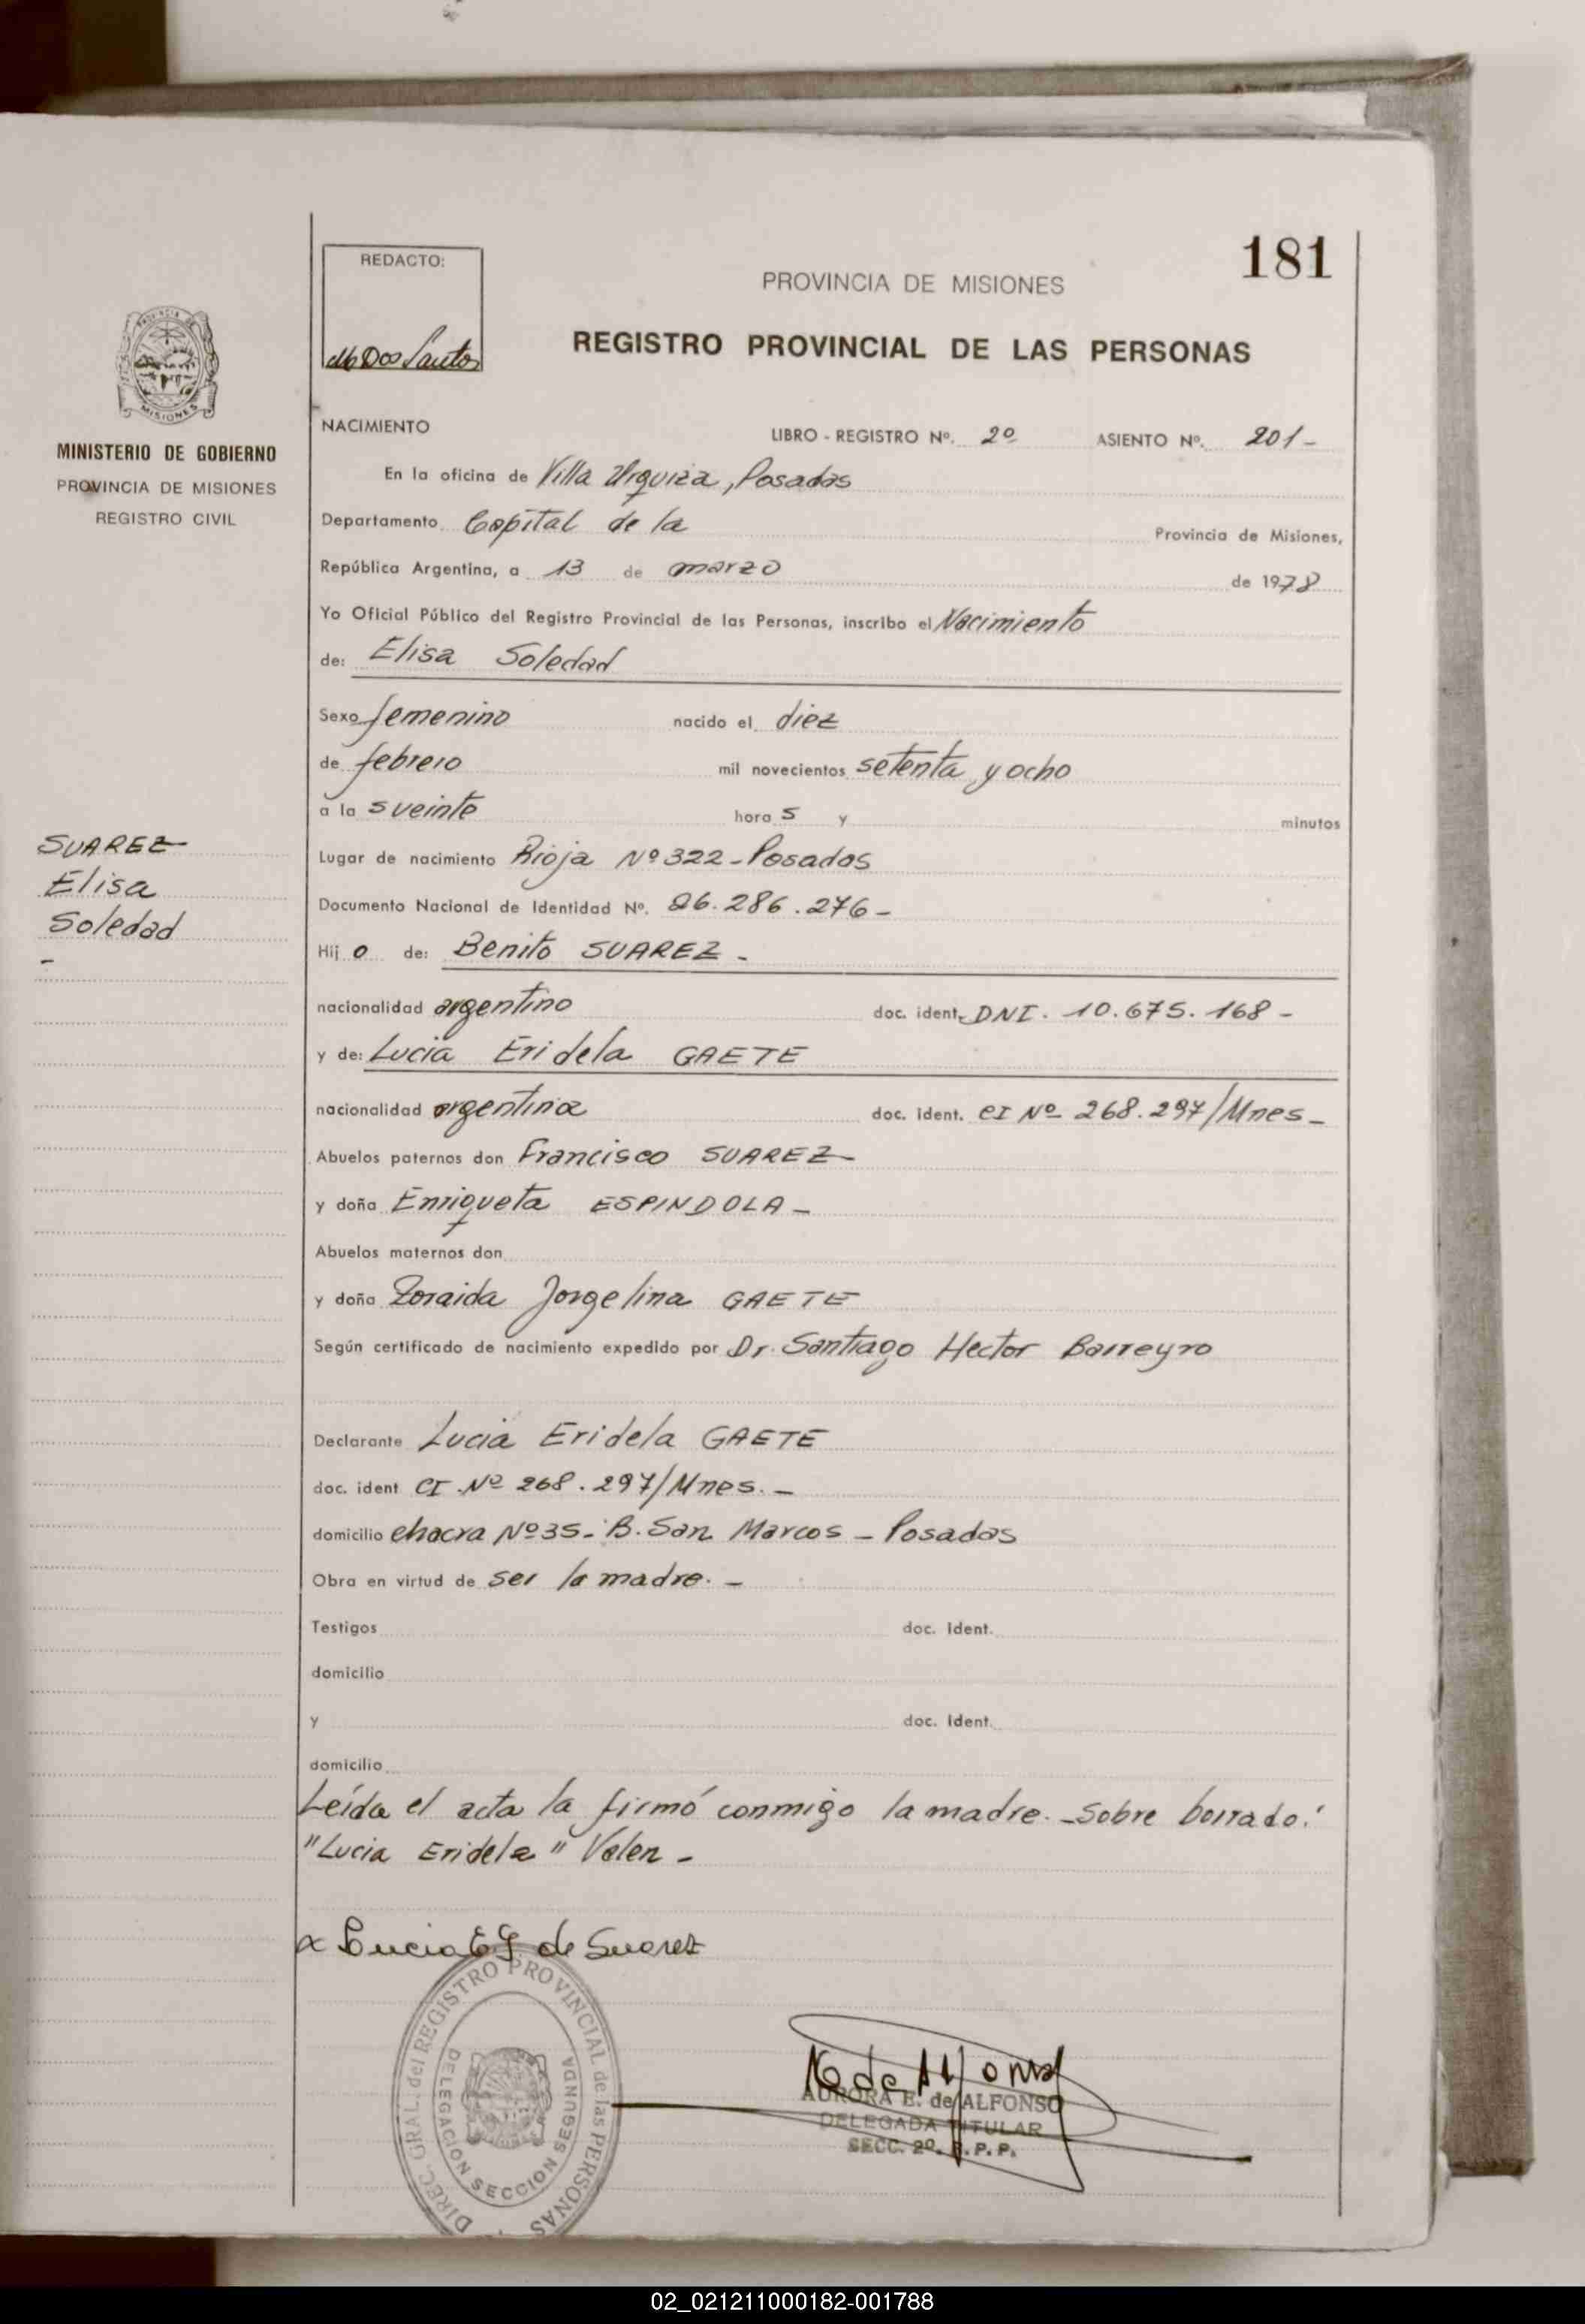 181
REDACTO:
Dos Santos
PROVINCIA DE MISIONES
REGISTRO PROVINCIAL DE LAS PERSONAS
PROVINCIA DE
MISIONES
MINISTERIO DE GOBIERNO
PROVINCIA DE MISIONES
REGISTRO CIVIL
NACIMIENTO LIBRO - REGISTRO Nº. 2º ASIENTO Nº. 201-
En la oficina de Villa Urquiza, Posadas
Departamento Capital de la Provincia de Misiones,
República Argentina, a 13 de marzo de 1978
Yo Oficial Público del Registro Provincial de las Personas, inscribo el Nacimiento
de: Elisa Soledad
Sexo femenino nacido el diez
de febrero mil novecientos setenta y ocho
a la s veinte hora s y minutos
SUAREZ
Elisa
Soledad
-
Lugar de nacimiento Rioja Nº 322-Posadas
Documento Nacional de Identidad Nº. 26.286.276-
Hij o de: Benito SUAREZ -
nacionalidad argentino doc. ident. DNI. 10.675.168-
y de: Lucia Eridela GAETE
nacionalidad argentina doc. ident. CI Nº 268.297/Mnes-
Abuelos paternos don Francisco SUAREZ-
y doña Enriqueta ESPINDOLA-
Abuelos maternos don
y doña Zoraida Jorgelina GAETE
Según certificado de nacimiento expedido por Dr. Santiago Hector Barreyro
Declarante Lucia Eridela GAETE
doc. ident CI.Nº 268.297/Mnes.-
domicilio chacra Nº35-B. San Marcos - Posadas
Obra en virtud de ser la madre.-
Testigos doc. ident.
domicilio
y doc. ident.
domicilio
Leída el acta la firmó conmigo la madre.-Sobre borrado:
"Lucia Eridela" Valen-
x Lucia E G. de Suarez
DIREC. GRAL. del REGISTRO PROVINCIAL de las PERSONAS
DELEGACION SECCION SEGUNDA
A E de Alfonso
AURORA E. de ALFONSO
DELEGADA TITULAR
SECC. 2º. R.P.P.
02_021211000182-001788